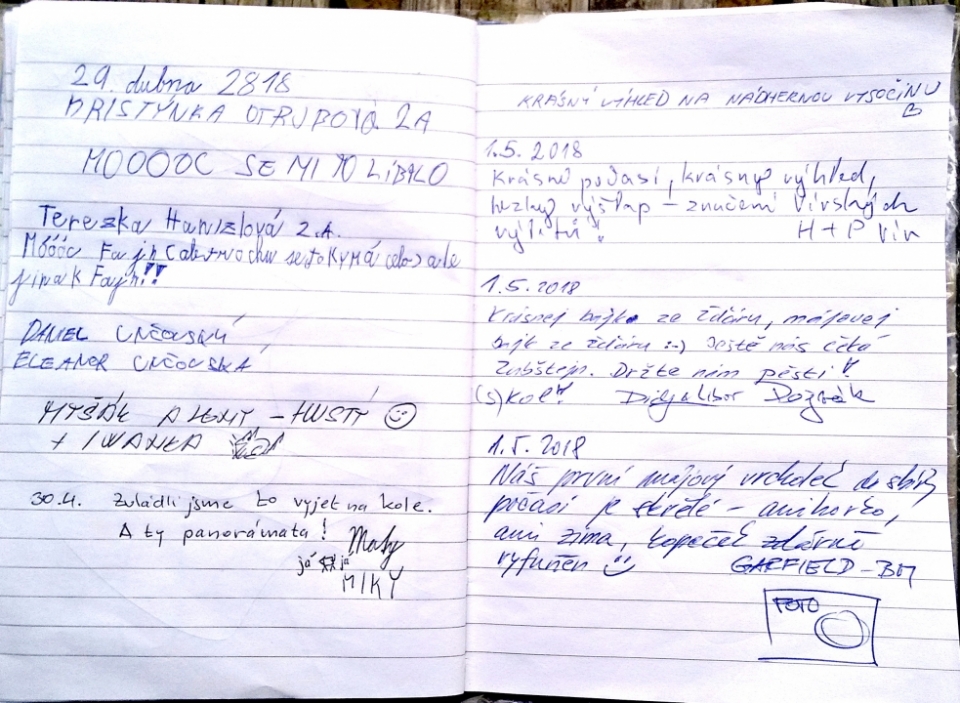 29. dubna 2818
KRISTÝNKA OTRUBOVÁ 2A
MOOOOC SE MI TO LÍBILO
Terezka Hanizlová 2.A.
Móóóc Fajn
jinak Fajn!!
DANIEL UNČOVSKÝ
ELEANOR UNČOVSKÁ
MYŠÁK - HUSTÝ
+ IVANKA
30.4. Zvládli jsme to vyjet na kole.
A ty panorámata!
já já
MIKY
KRÁSNÝ VÝHLED NA NÁDHERNOU VYSOČINU
1.5. 2018
Krásné počasí, krásný výhled,
hezký výšlap - značení Vírských
výletů! H + P Vír
1.5.2018
Krásnej bajk ze Žďáru, májovej
bajk ze Žďáru :-) Ještě nás čeká
Zubštejn. Držte nám pěsti!
(S)kol! Didy & Libor
1.5. 2018
Náš první májový vrcholeč do sbírky
počasí je skvělé - ani horko,
ani zima, kopeček zdárně
vyfuněn
GARFIELD - BM
FOTO